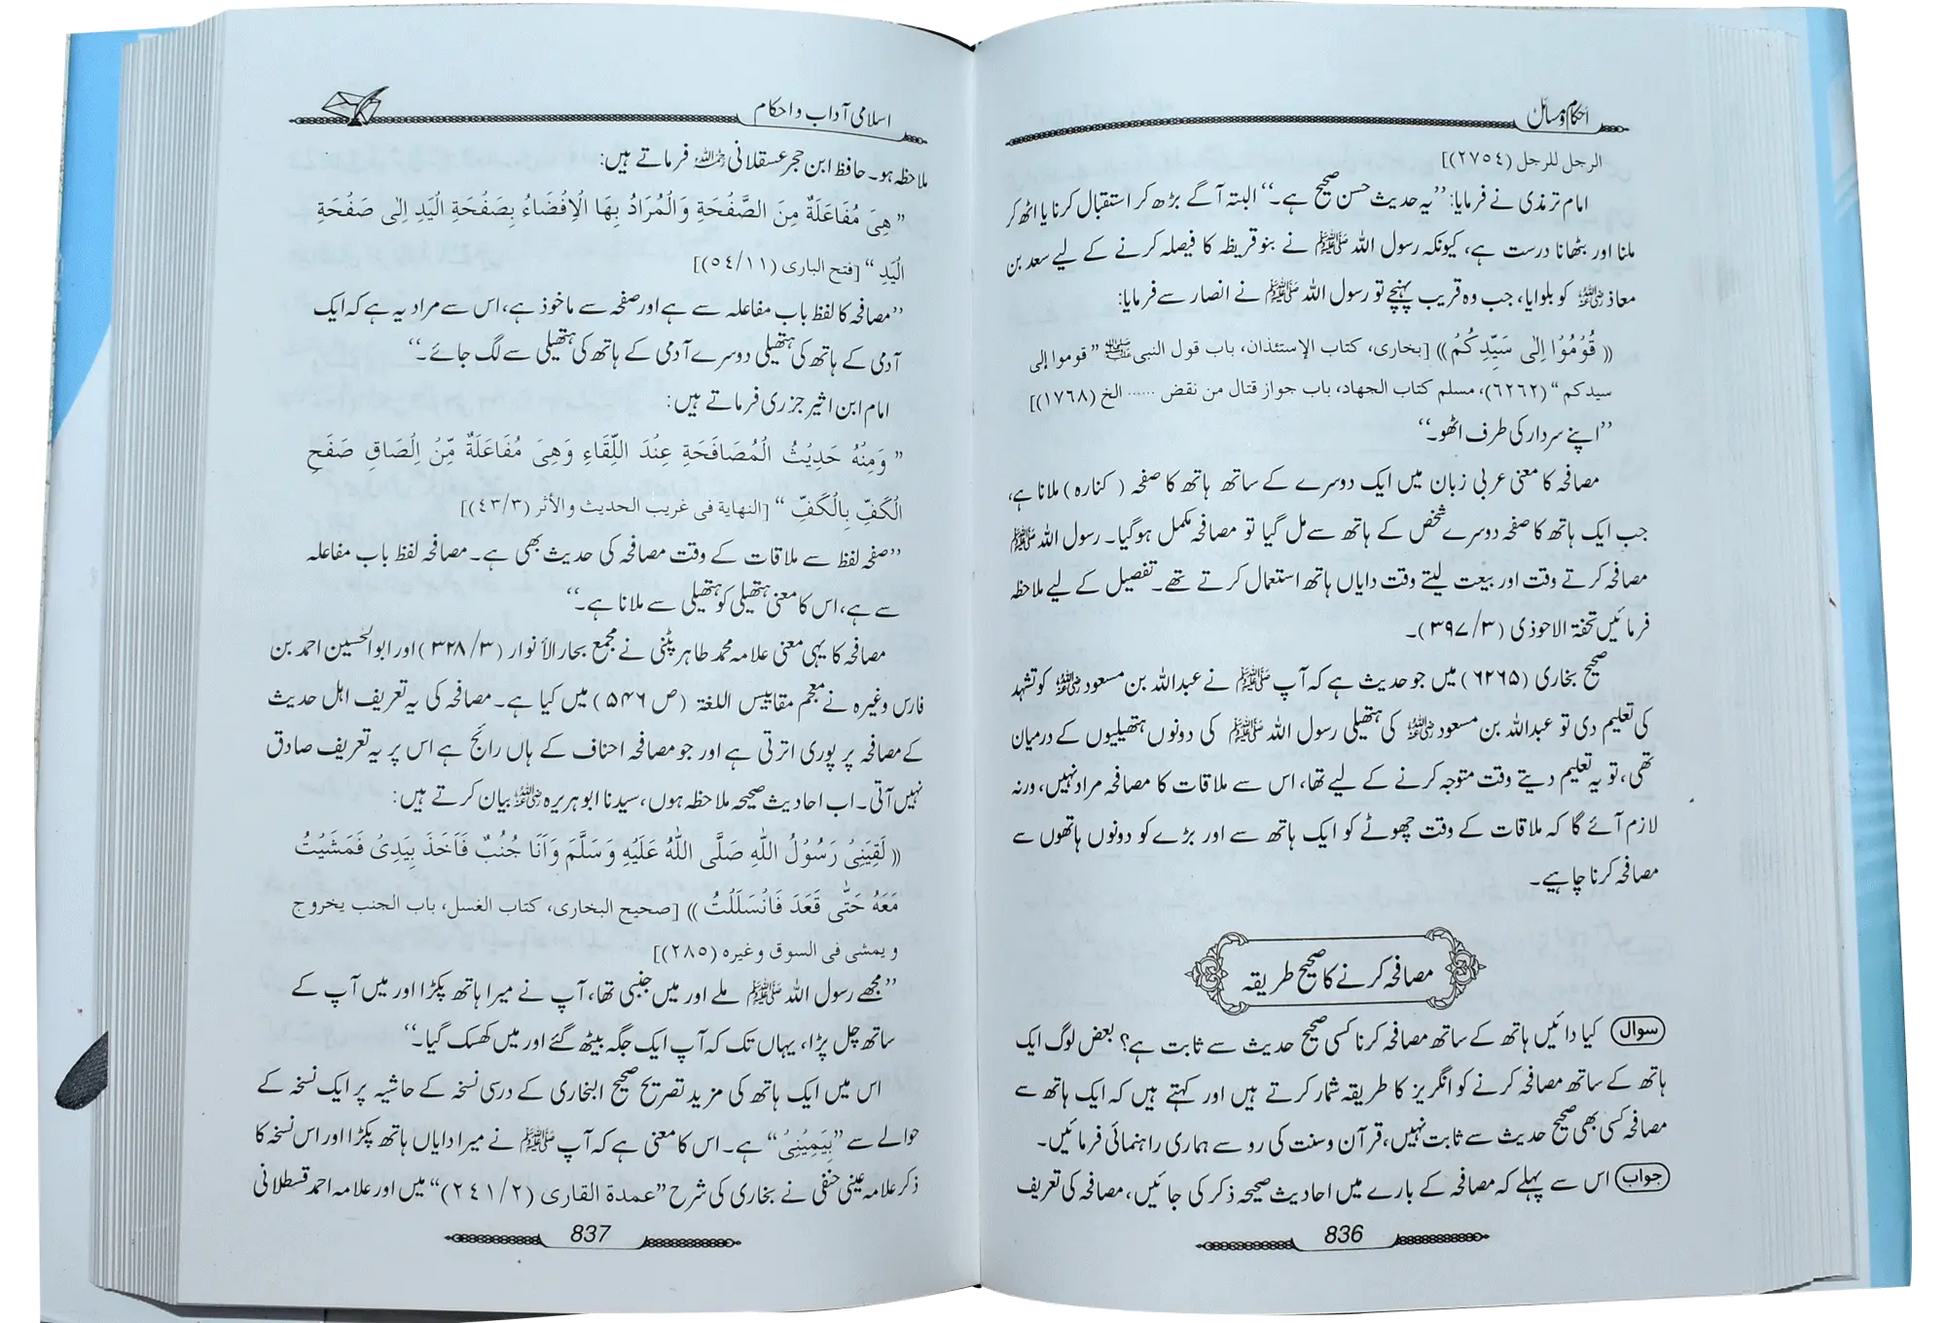 احکام و مسائل
الرجل للرجل (٢٧٥٤)]
امام ترمذی نے فرمایا: ’’یہ حدیث حسن صحیح ہے۔‘‘ البتہ آگے بڑھ کر استقبال کرنا یا اٹھ کر
ملنا اور بٹھانا درست ہے، کیونکہ رسول اللہ ﷺ نے بنو قریظہ کا فیصلہ کرنے کے لیے سعد بن
معاذ رضی اللہ عنہ کو بلوایا، جب وہ قریب پہنچے تو رسول اللہ ﷺ نے انصار سے فرمایا:
(( قُوْمُوْا اِلٰی سَیِّدِکُمْ )) [بخاری، کتاب الإستئذان، باب قول النبی ﷺ ”قوموا إلی
سیدکم“ (٦٢٦٢)، مسلم کتاب الجهاد، باب جواز قتال من نقض ...... الخ (١٧٦٨)]
’’اپنے سردار کی طرف اٹھو۔‘‘
مصافحہ کا معنی عربی زبان میں ایک دوسرے کے ساتھ ہاتھ کا صفحہ (کنارہ) ملانا ہے،
جب ایک ہاتھ کا صفحہ دوسرے شخص کے ہاتھ سے مل گیا تو مصافحہ مکمل ہو گیا۔ رسول اللہ ﷺ
مصافحہ کرتے وقت اور بیعت لیتے وقت دایاں ہاتھ استعمال کرتے تھے۔ تفصیل کے لیے ملاحظہ
فرمائیں تحفۃ الاحوذی (۳/۳۹۷)۔
صحیح بخاری (۶۲۶۵) میں جو حدیث ہے کہ آپ ﷺ نے عبداللہ بن مسعود رضی اللہ عنہ کو تشہد
کی تعلیم دی تو عبداللہ بن مسعود رضی اللہ عنہ کی ہتھیلی رسول اللہ ﷺ کی دونوں ہتھیلیوں کے درمیان
تھی، تو یہ تعلیم دیتے وقت متوجہ کرنے کے لیے تھا، اس سے ملاقات کا مصافحہ مراد نہیں، ورنہ
لازم آئے گا کہ ملاقات کے وقت چھوٹے کو ایک ہاتھ سے اور بڑے کو دونوں ہاتھوں سے
مصافحہ کرنا چاہیے۔
مصافحہ کرنے کا صحیح طریقہ
سوال کیا دائیں ہاتھ کے ساتھ مصافحہ کرنا کسی صحیح حدیث سے ثابت ہے؟ بعض لوگ ایک
ہاتھ کے ساتھ مصافحہ کرنے کو انگریز کا طریقہ شمار کرتے ہیں اور کہتے ہیں کہ ایک ہاتھ سے
مصافحہ کسی بھی صحیح حدیث سے ثابت نہیں، قرآن وسنت کی رو سے ہماری راہنمائی فرمائیں۔
جواب اس سے پہلے کہ مصافحہ کے بارے میں احادیث صحیحہ ذکر کی جائیں، مصافحہ کی تعریف
836
اسلامی آداب و احکام
ملاحظہ ہو۔ حافظ ابن حجر عسقلانی رحمہ اللہ فرماتے ہیں:
” هِیَ مُفَاعَلَةٌ مِنَ الصَّفْحَةِ وَالْمُرَادُ بِهَا الْاِفْضَاءُ بِصَفْحَةِ الْیَدِ اِلٰی صَفْحَةِ
الْیَدِ “ [فتح الباری (٥٤/١١)]
’’مصافحہ کا لفظ باب مفاعلہ سے ہے اور صفحہ سے ماخوذ ہے، اس سے مراد یہ ہے کہ ایک
آدمی کے ہاتھ کی ہتھیلی دوسرے آدمی کے ہاتھ کی ہتھیلی سے لگ جائے۔‘‘
امام ابن اثیر جزری فرماتے ہیں:
” وَمِنْهُ حَدِیْثُ الْمُصَافَحَةِ عِنْدَ اللِّقَاءِ وَهِیَ مُفَاعَلَةٌ مِّنْ اِلْصَاقِ صَفْحِ
الْکَفِّ بِالْکَفِّ “ [النهایة فی غریب الحدیث والأثر (٤٣/٣)]
’’صفحہ لفظ سے ملاقات کے وقت مصافحہ کی حدیث بھی ہے۔ مصافحہ لفظ باب مفاعلہ
سے ہے، اس کا معنی ہتھیلی کو ہتھیلی سے ملانا ہے۔‘‘
مصافحہ کا یہی معنی علامہ محمد طاہر پٹنی نے مجمع بحار الأنوار (۳/۳۲۸) اور ابوالحسین احمد بن
فارس وغیرہ نے معجم مقاییس اللغۃ (ص ۵۴۶) میں کیا ہے۔ مصافحہ کی یہ تعریف اہل حدیث
کے مصافحہ پر پوری اترتی ہے اور جو مصافحہ احناف کے ہاں رائج ہے اس پر یہ تعریف صادق
نہیں آتی۔ اب احادیث صحیحہ ملاحظہ ہوں، سیدنا ابو ہریرہ رضی اللہ عنہ بیان کرتے ہیں:
(( لَقِیَنِیْ رَسُوْلُ اللّٰهِ صَلَّی اللّٰهُ عَلَیْهِ وَسَلَّمَ وَاَنَا جُنُبٌ فَاَخَذَ بِیَدِیْ فَمَشَیْتُ
مَعَهُ حَتّٰی قَعَدَ فَانْسَلَلْتُ )) [صحیح البخاری، کتاب الغسل، باب الجنب یخروج
و یمشی فی السوق وغیره (٢٨٥)]
’’مجھے رسول اللہ ﷺ ملے اور میں جنبی تھا، آپ نے میرا ہاتھ پکڑا اور میں آپ کے
ساتھ چل پڑا، یہاں تک کہ آپ ایک جگہ بیٹھ گئے اور میں کھسک گیا۔‘‘
اس میں ایک ہاتھ کی مزید تصریح صحیح البخاری کے درسی نسخہ کے حاشیہ پر ایک نسخہ کے
حوالے سے ”بِیَمِیْنِیْ“ ہے۔ اس کا معنی ہے کہ آپ ﷺ نے میرا دایاں ہاتھ پکڑا اور اس نسخہ کا
ذکر علامہ عینی حنفی نے بخاری کی شرح ”عمدة القاری (٢٤١/٢)“ میں اور علامہ احمد قسطلانی
837